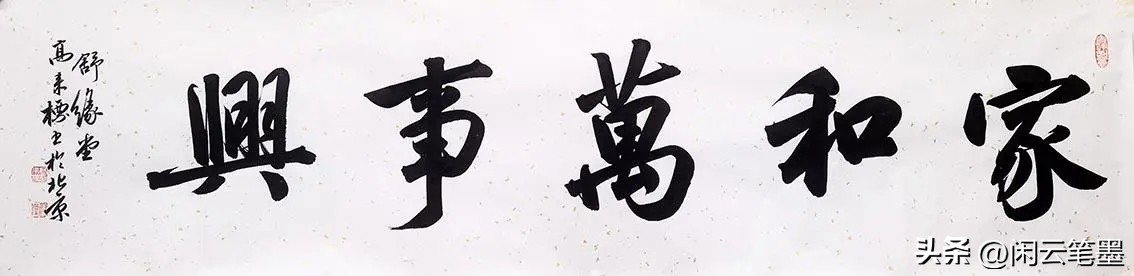 家和萬事興
舒缘堂
高来書於北京
头条 @闲云笔墨